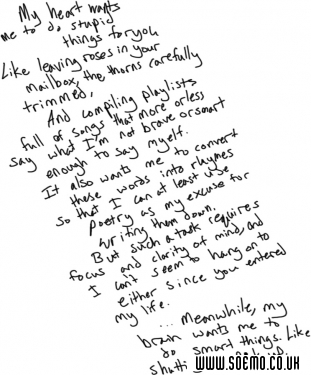 My heart wants
me to do stupid
things for you
Like leaving roses in your
mailbox, the thorns carefully
trimmed,
And compiling playlists
full of songs that more or less
say what I'm not brave or smart
enough to say myself.
It also wants me to convert
these words into rhymes
so that I can at least use
poetry as my excuse for
writing them down.
But such a task requires
focus and clarity of mind, and
I can't seem to hang on to
either since you entered
my life.
... Meanwhile, my
brain wants me to
do smart things. Like
WWW.SOEMO.CO.UK